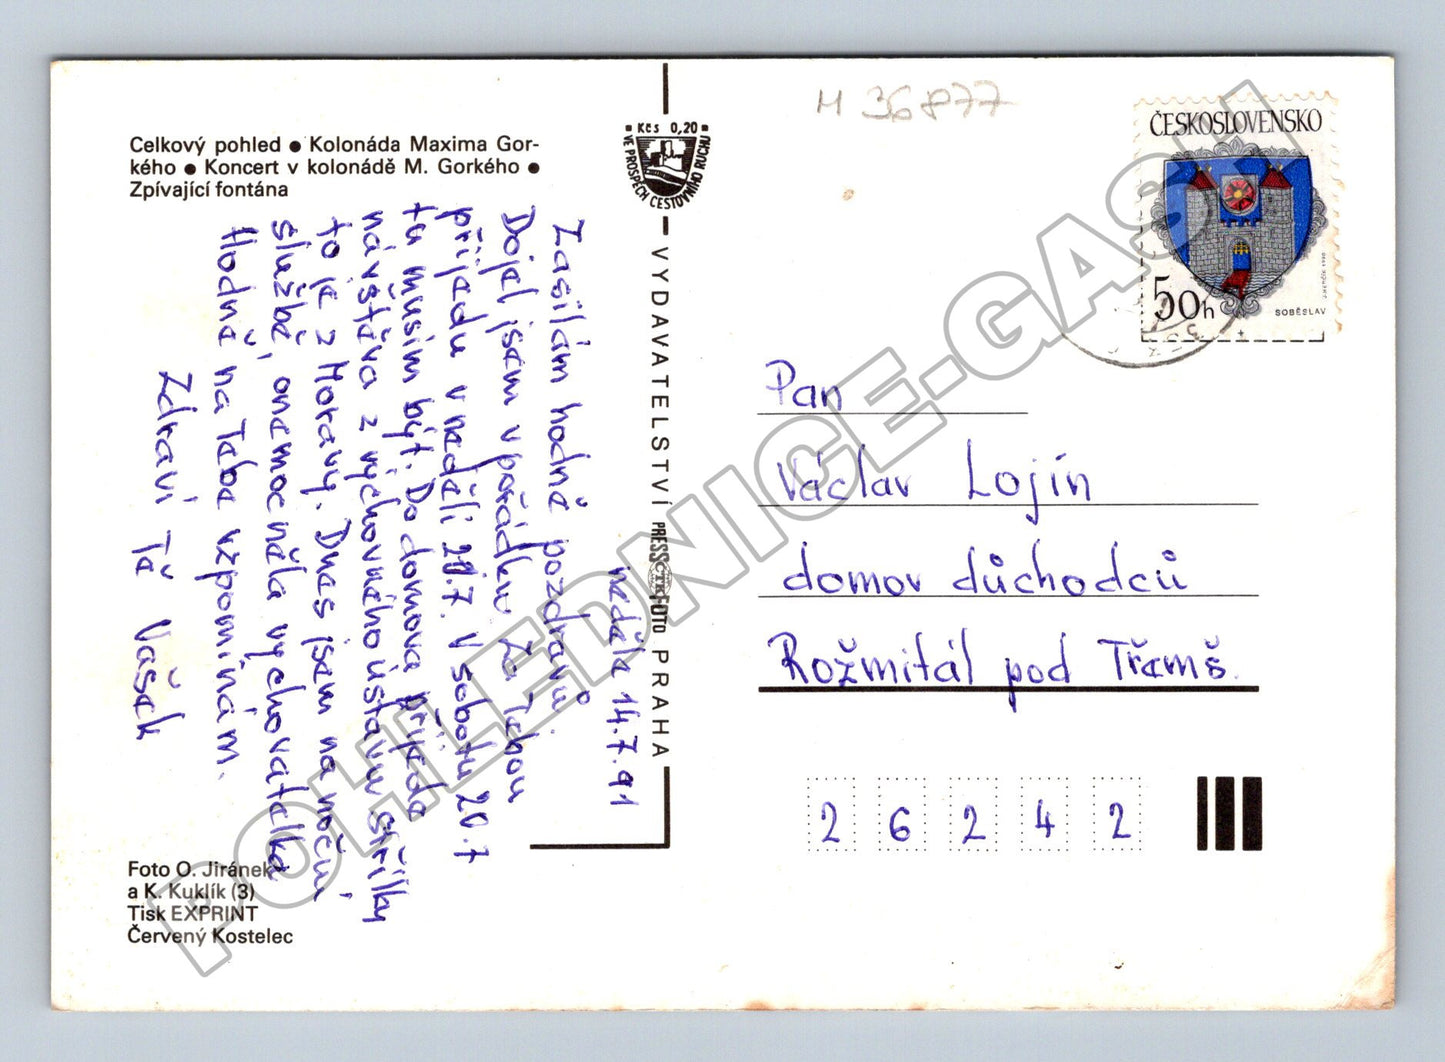 Celkový pohled ● Kolonáda Maxima Gor-
kého ● Koncert v kolonádě M. Gorkého ●
Zpívající fontána
neděla 14.7.91
Zasílám hodně pozdravů.
Dojel jsem v pořádku Za Tebou
přijedu v neděli 21.7. V sobotu 20.7
tu musím být. Do domova přijede
návštěva z výchovného ústavu Střílky
to je z Moravy. Dnes jsem na noční
službě, onemocněla vychovatelka
Hodně na Tebe vzpomínám.
Zdraví Tě Vašek
Foto O. Jiránek
a K. Kuklík (3)
Tisk EXPRINT
Červený Kostelec
Kčs 0,20
VE PROSPĚCH CESTOVNÍHO RUCHU
VYDAVATELSTVÍ PRESSFOTO PRAHA
ČTK
M 36877
ČESKOSLOVENSKO
50h
SOBĚSLAV
Pan
Václav Lojín
domov důchodců
Rožmitál pod Třemš.
26242
POHLEDNICE-GASH